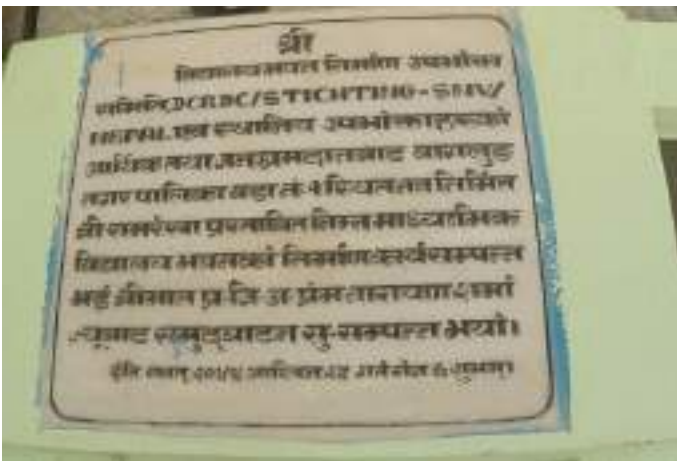 श्री
विद्यालय भवन निर्माण उपभोक्ता
समिति DCRDC/STICHTING-SNV/
NEPAL एवं स्थानिय उपभोक्ताहरुको
आर्थिक तथा जनश्रमदानबाट बागलुङ
नगरपालिका वडा नं. स्थित नव निर्मित
श्री प्रस्तावित निम्न माध्यामिक
विद्यालय भवनको निर्माण कार्य सम्पन्न
भई श्रीमान प्र. जि. अ. प्रेम नारायण शर्मा
ज्यूबाट समुद्घाटन सु-सम्पन्न भयो।
ईति सम्वत् आश्विन गते रोज ६ शुभम्।